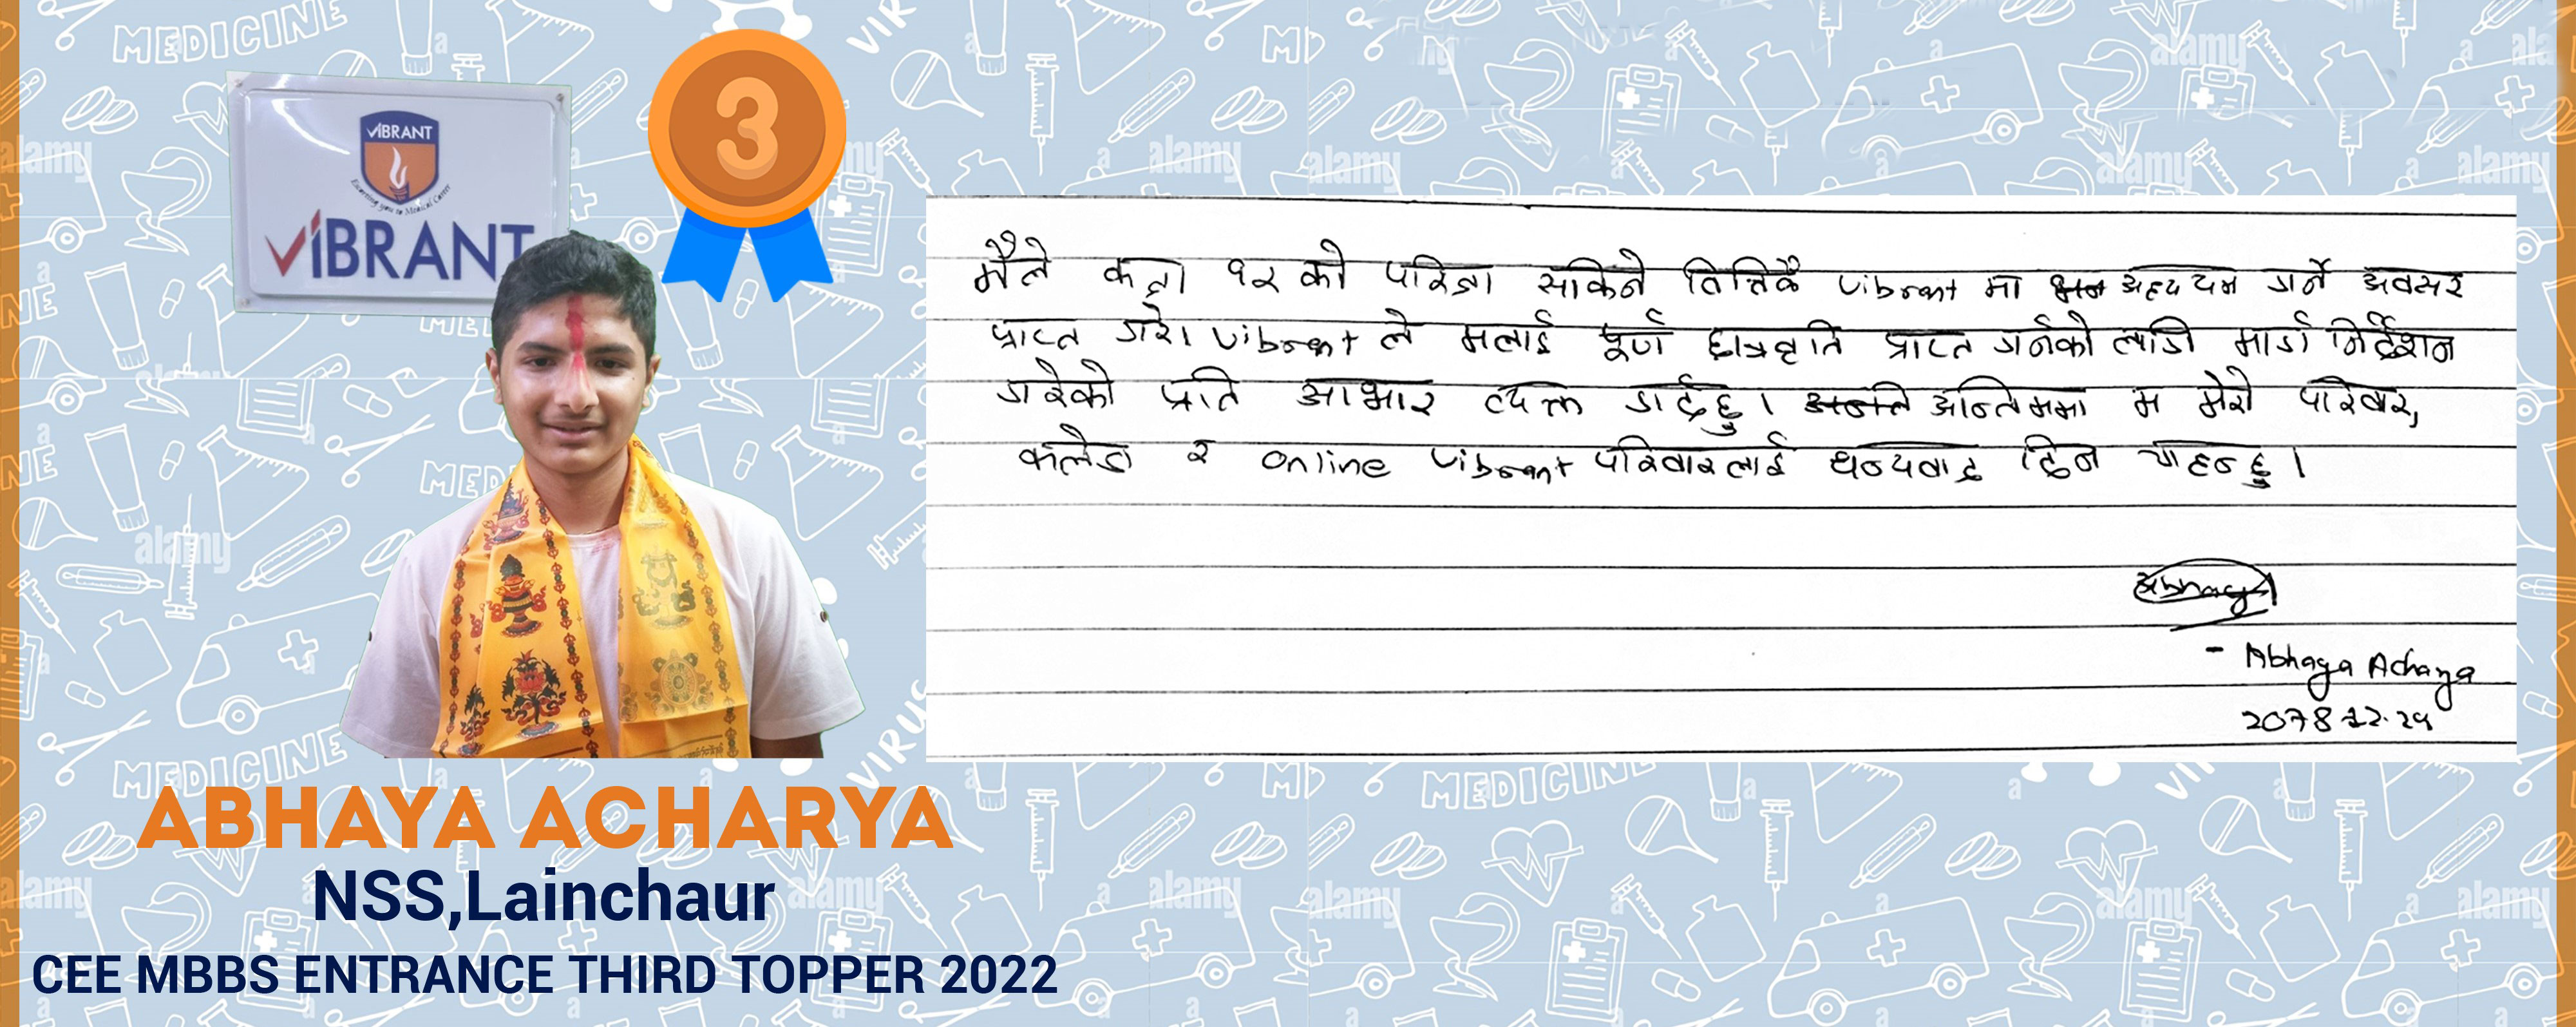 VIBRANT
Escorting you to Medical Career
VIBRANT
3
मैले कक्षा १२ को परिक्षा सकिने वित्तिकै Vibrant मा अध्ययन गर्ने अवसर
प्राप्त गरे। Vibrant ले मलाई पूर्ण छात्रवृति प्राप्त गर्नको लागि मार्ग निर्देशन
गरेको प्रति आभार व्यक्त गर्दछु। अन्तिममा म मेरो परिवार,
कलेज र online Vibrant परिवारलाई धन्यवाद दिन चाहन्छु।
Abhaya
- Abhaya Acharya
2078-12-29
ABHAYA ACHARYA
NSS,Lainchaur
CEE MBBS ENTRANCE THIRD TOPPER 2022
MEDICINE
VIRUS
alamy